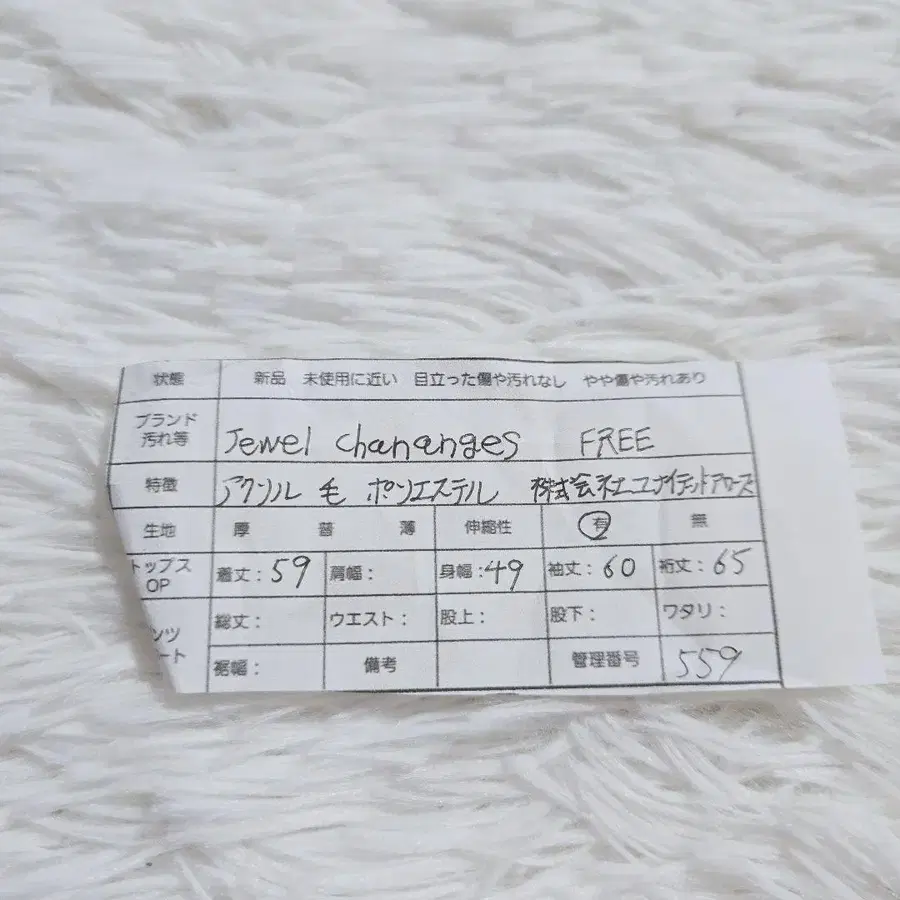 状態 新品 未使用に近い 目立った傷や汚れなし やや傷や汚れあり
ブランド
汚れ等
Jewel chananges FREE
特徴 アクソル 毛 ポソエステル 株式会社ユナイテットアローズ
生地 厚 普 薄 伸縮性 有 無
トップス
OP
着丈：59 肩幅： 身幅：49 袖丈：60 裄丈：65
総丈： ウエスト： 股上： 股下： ワタリ：
ンツ
ート
裾幅： 備考 管理番号 559